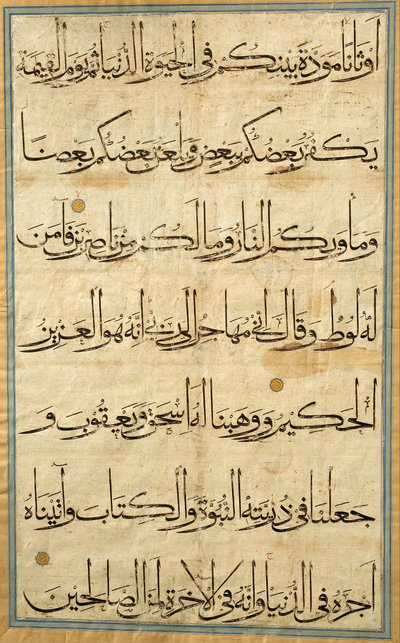 اوثانا مودة بينكم في الحيوة الدنيا ثم يوم القيمة
يكفر بعضكم ببعض ويلعن بعضكم بعضا
وماويكم النار وما لكم من ناصرين فامن
له لوط وقال اني مهاجر الى ربي انه هو العزيز
الحكيم ووهبنا له اسحق ويعقوب و
جعلنا في ذريته النبوة والكتاب واتيناه
اجره في الدنيا وانه في الاخرة لمن الصالحين